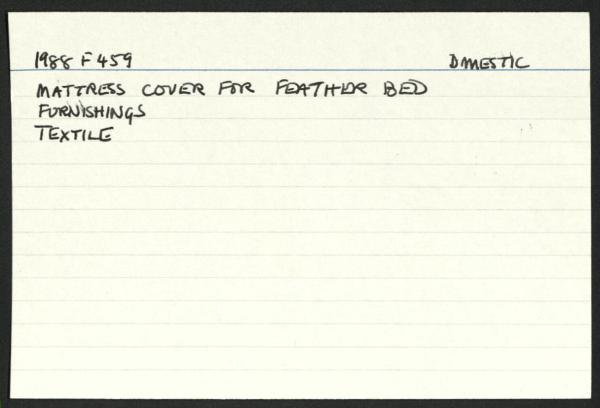 1988 F 459 DOMESTIC
MATTRESS COVER FOR FEATHER BED
FURNISHINGS
TEXTILE